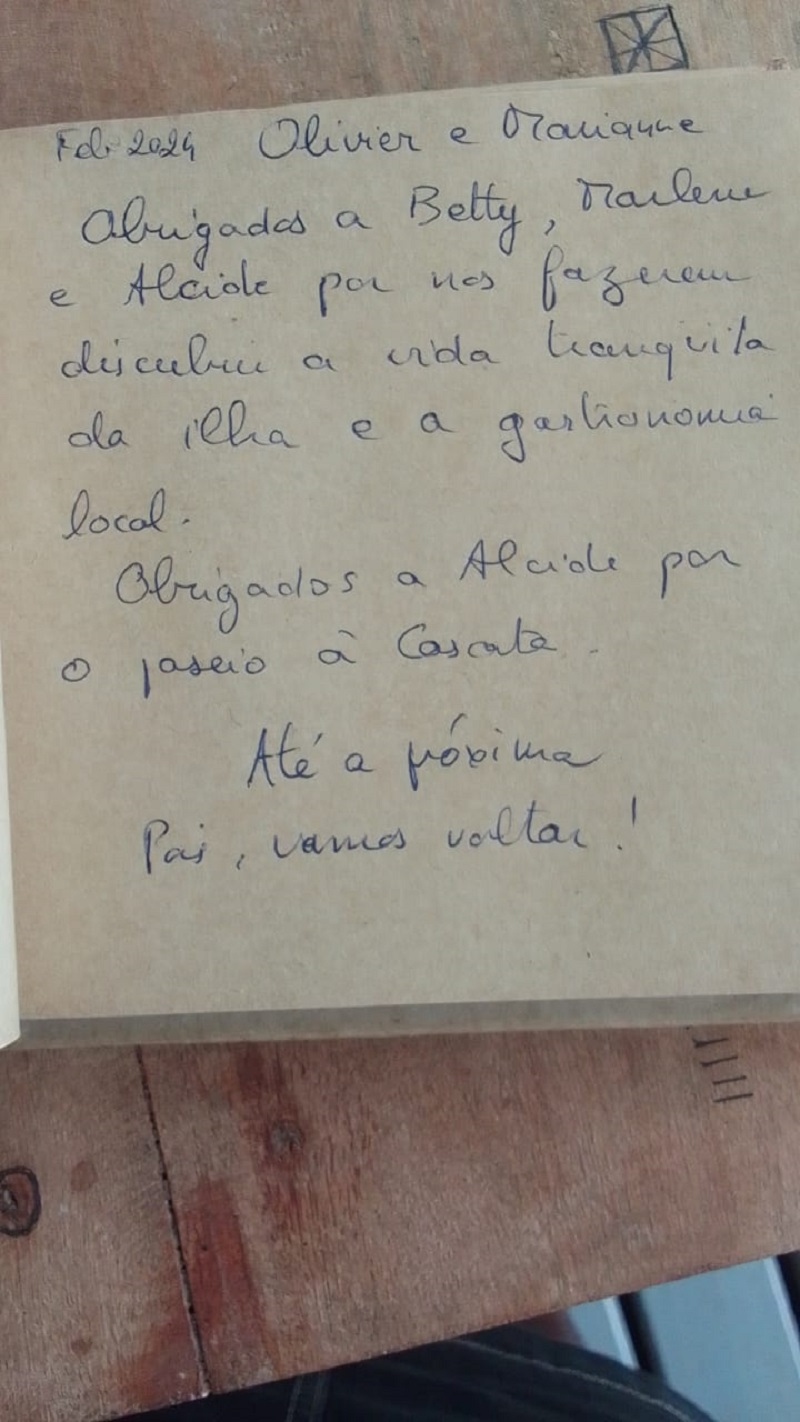 Feb 2024 Olivier e Marianne
Obrigados a Betty, Marlene
e Alcide por nos fazerem
discubrir a vida tranquila
da ilha e a gastronomia
local.
Obrigados a Alcide por
o paseio à Cascata.
Até a próxima
Pois, vamos voltar!